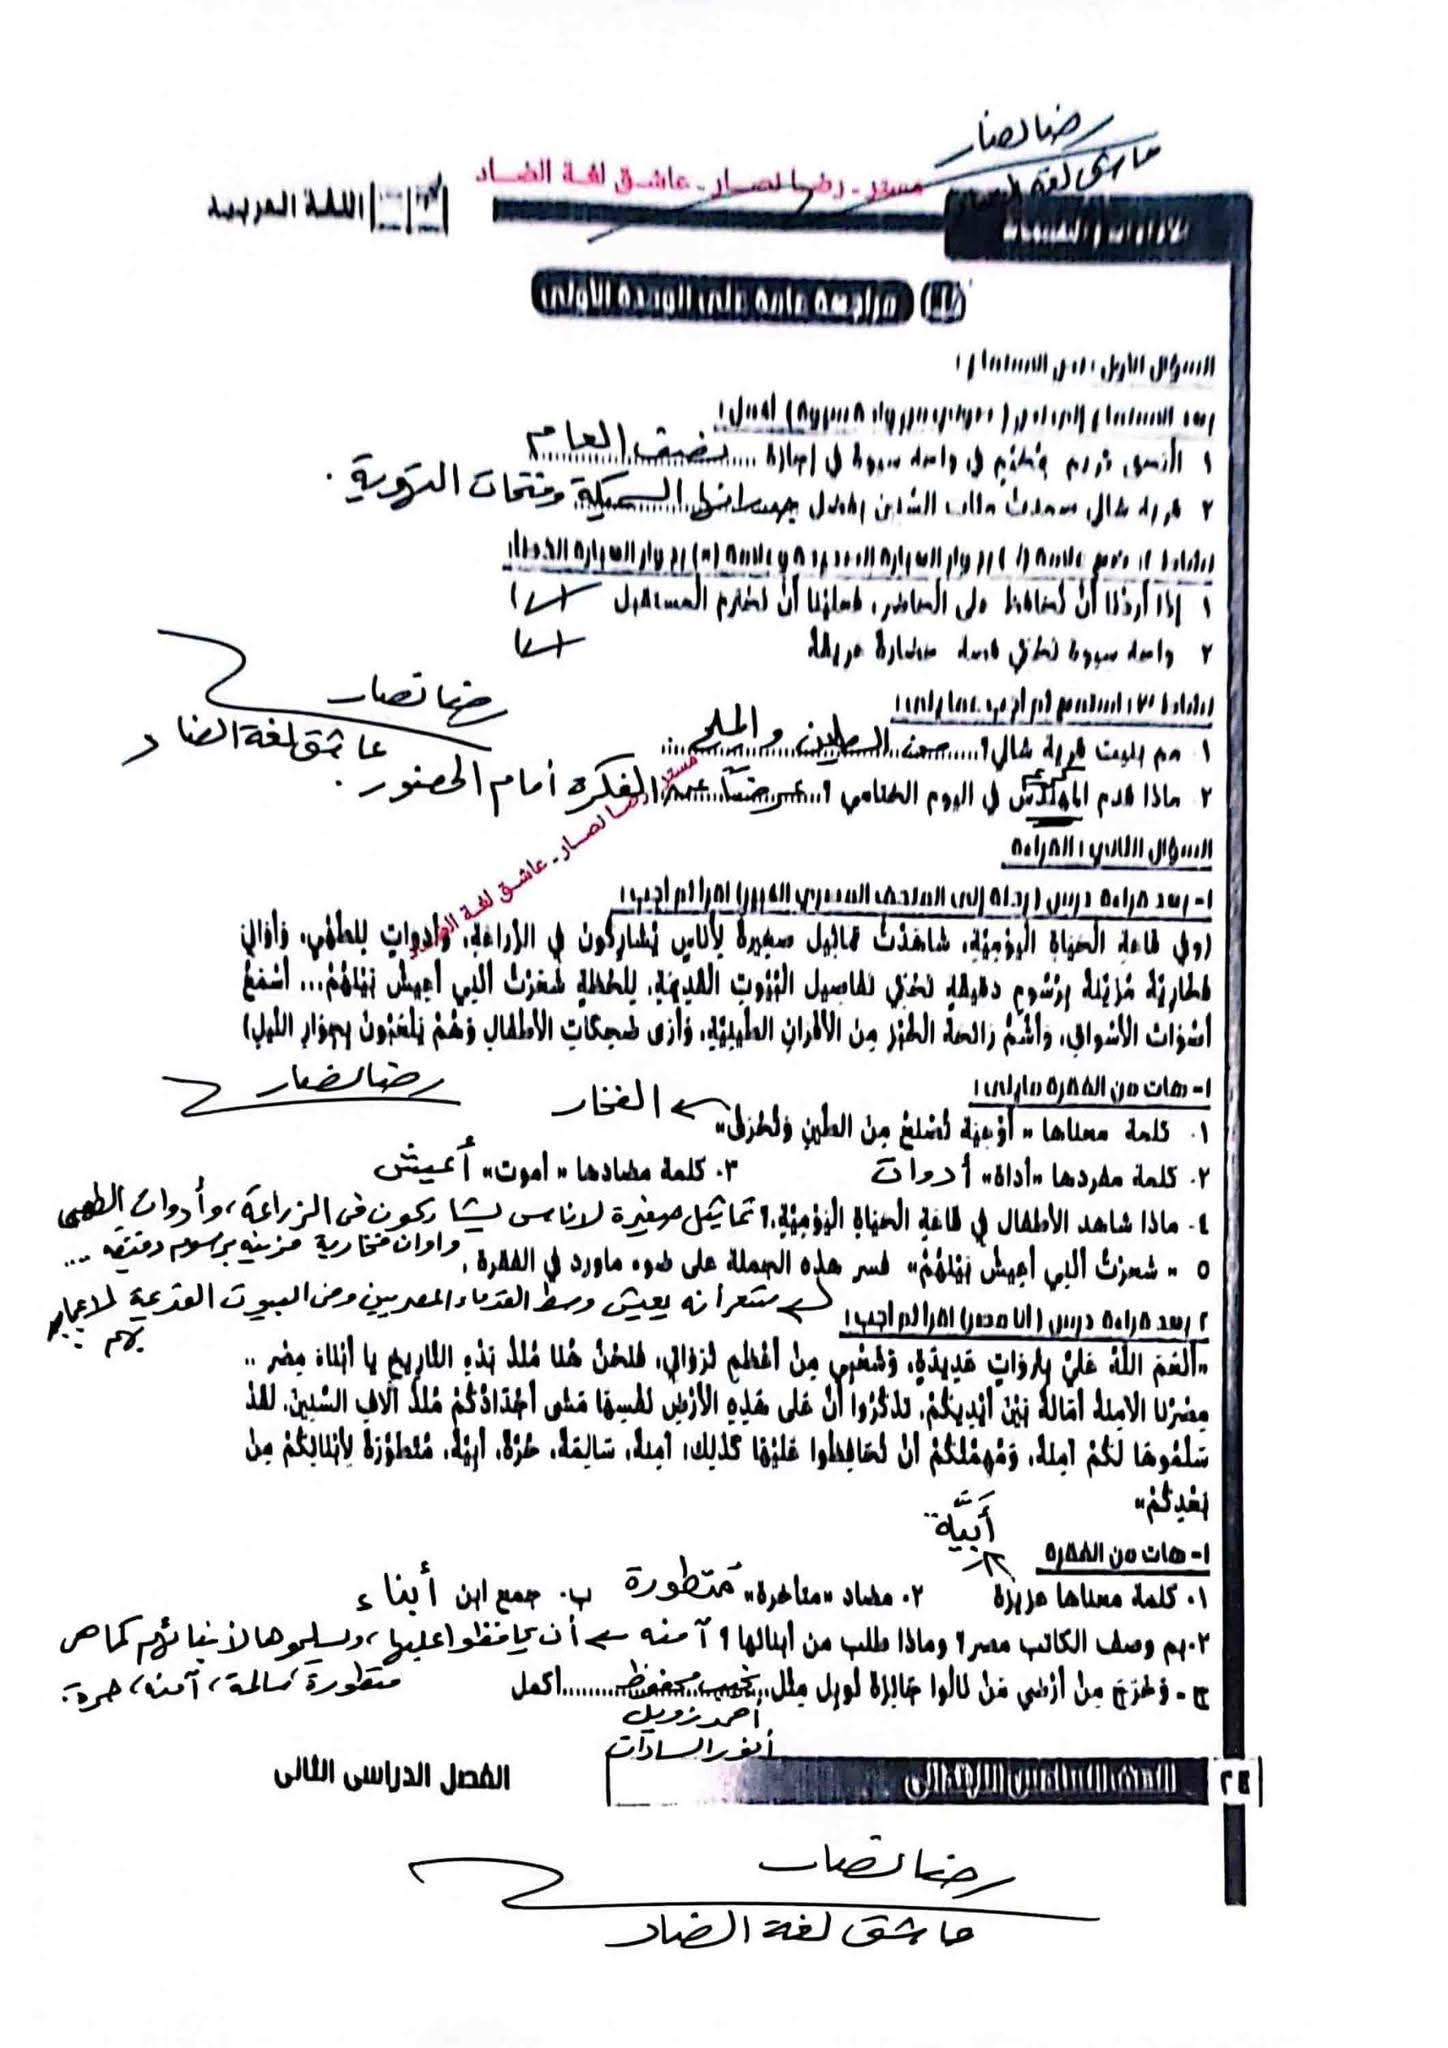 رضا نصار
عاشق لغة الضاد
مستر - رضا نصار - عاشق لغة الضاد
اللغة العربية
الأداءات والتقييمات
مراجعة عامة على الوحدة الأولى
السؤال الأول : نص الاستماع :
بعد الاستماع إلى نص ( سيوة) أكمل:
١ التقى كريم في واحة سيوة في إجازة نصف العام
٢ قرية شالي صمدت مئات السنين بفضل جدرانها السميكة وفتحات التهوية .
١ إذا أردنا أن نحافظ على الحاضر، فعلينا أن نحترم المستقبل
٢ واحة سيوة تحكي قصة حضارة عريقة
نشاط ٣: استمع ثم أجب عما يلي:
رضا نصار
عاشق لغة الضاد
١. مم بنيت قرية شالي؟ من الطين والملح
٢. ماذا قدم المهندس كريم في اليوم الختامي ؟ عرضًا عن الفكرة أمام الحضور .
مستر رضا نصار - عاشق لغة الضاد
السؤال الثاني : القراءة
١- بعد قراءة درس (رحلة إلى المتحف المصري الكبير) اقرأ ثم أجب:
(وفي قاعة الْحَيَاةِ الْيَوْمِيَّةِ، شاهَدْتُ تماثيل صغيرة لأناس يُشاركون في الزراعة، وأدوات للطهي، وأواني
فخارية مُزينة برسوم دقيقة تحكي تفاصيل البيوت القديمة. للحظة شعرت أنني أعيش بينهم... أسمع
أصوات الأسواق، وأشم رائحة الخبز من الأفران الطينية، وأرى ضحكات الأطفال وهم يلعبون بجوار النيل)
رضا نصار
١- هات من الفقرة ما يلي:
١. كلمة معناها " أوعية تصنع من الطين وتحرق" الفخار
٢. كلمة مفردها "أداة" أدوات ٣. كلمة مضادها " أموت" أعيش
٤. ماذا شاهد الأطفال في قاعة الحياة اليومية.؟ تماثيل صغيرة لاناس يشاركون في الزراعة، وأدوات الطهي
واوان فخارية مزينه برسوم دقيقه ...
٥ " شعرت أنني أعيش بينهم" فسر هذه الجملة على ضوء ماورد في الفقرة .
شعر أنه يعيش وسط القدماء المصريين ومن البيوت القديمة لاعجابه
بهم
٢ بعد قراءة درس (أنا مصر) اقرأ ثم أجب:
"أنعم الله عليّ بثروات عديدة، وشعبي من أعظم ثرواتي، فنحن هنا منذ بدء التاريخ يا أبناء مصر ..
مصرنا الآمنة أمانة بين أيديكم. تذكروا أن على هذه الأرض نفسها مشى أجدادكم منذ آلاف السنين. لقد
سلموها لكم آمنة، ومهمتكم أن تحافظوا عليها كذلك؛ آمنة، سالمة، حرة، أبية، متطورة لأبنائكم من
بعدكم"
أَبيَّة
١- هات من الفقرة
١. كلمة معناها عزيزة ٢. مضاد "متأخرة" مُتطورة ب. جمع ابن أبناء
٢. بم وصف الكاتب مصر؟ وماذا طلب من أبنائها ؟ آمنه أن يحافظوا عليها، ويسلموها لأبنائهم كما هى
متطورة، سالمة، آمنه، حرة.
ج - وخرج من أرضي من نالوا جائزة نوبل مثل نجيب محفوظ أكمل
أحمد زويل
أنور السادات
٢٤
الصف السادس الابتدائي
الفصل الدراسى الثانى
رضا نصار
عاشق لغة الضاد